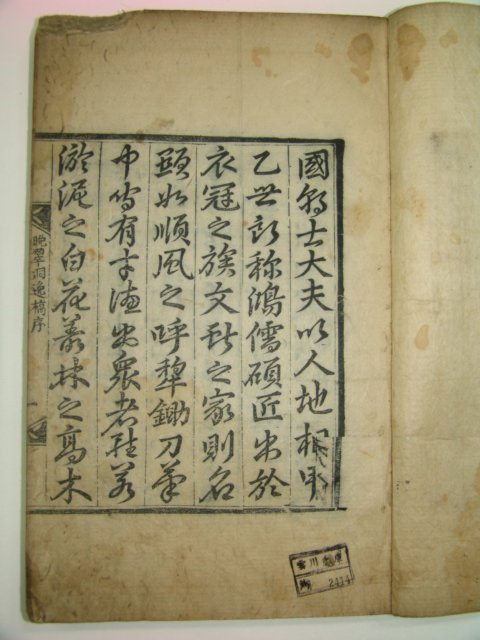 國朝士大夫以人地相甲
乙世所称鴻儒碩匠出於
衣冠之族文獻之家則名
顕如順風之呼犂鋤刀筆
中َ有才德出衆者然若
淤泥之白花叢林之高木
晩翠洞逸稿序
一
2414